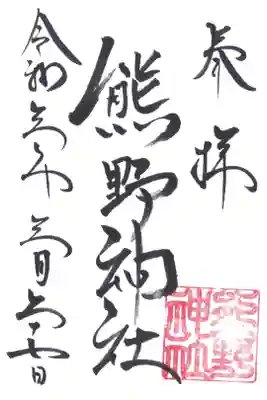 奉拝
熊野神社
令和 年 月 十七日
熊野
神社